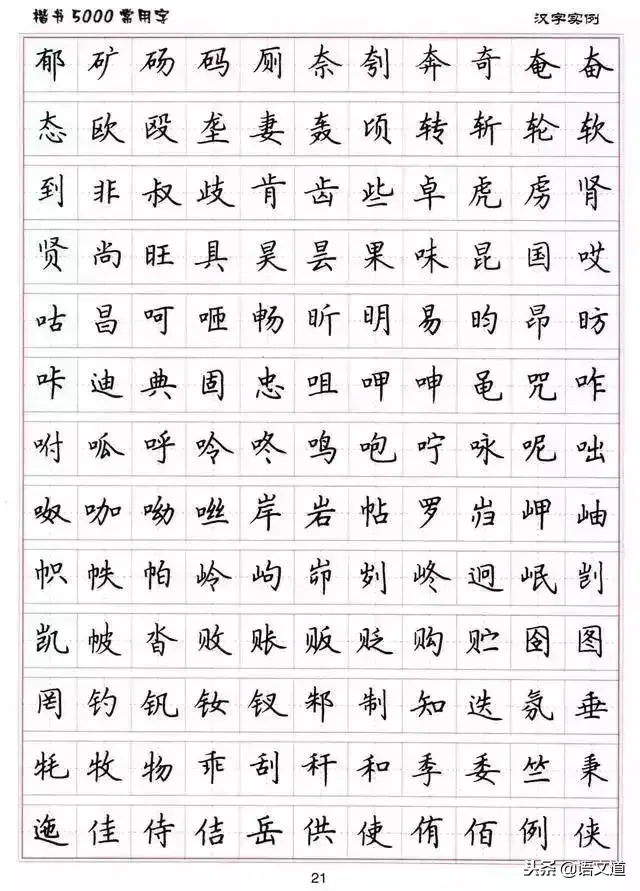 楷书5000常用字 汉字实例
郁 矿 砀 码 厕 奈 刳 奔 奇 奄 奋
态 欧 殴 垄 妻 轰 顷 转 斩 轮 软
到 非 叔 歧 肯 齿 些 卓 虎 虏 肾
贤 尚 旺 具 昊 昙 果 味 昆 国 哎
咕 昌 呵 咂 畅 昕 明 易 昀 昂 昉
咔 迪 典 固 忠 咀 呷 呻 黾 咒 咋
咐 呱 呼 呤 咚 鸣 咆 咛 咏 呢 咄
呶 咖 呦 咝 岸 岩 帖 罗 岿 岬 岫
帜 帙 帕 岭 岣 峁 刿 峂 迥 岷 剀
凯 帔 沓 败 账 贩 贬 购 贮 囹 图
罔 钓 钒 钕 钗 邾 制 知 迭 氛 垂
牦 牧 物 乖 刮 秆 和 季 委 竺 秉
迤 佳 侍 佶 岳 供 使 侑 佰 例 侠
21
头条@语文道